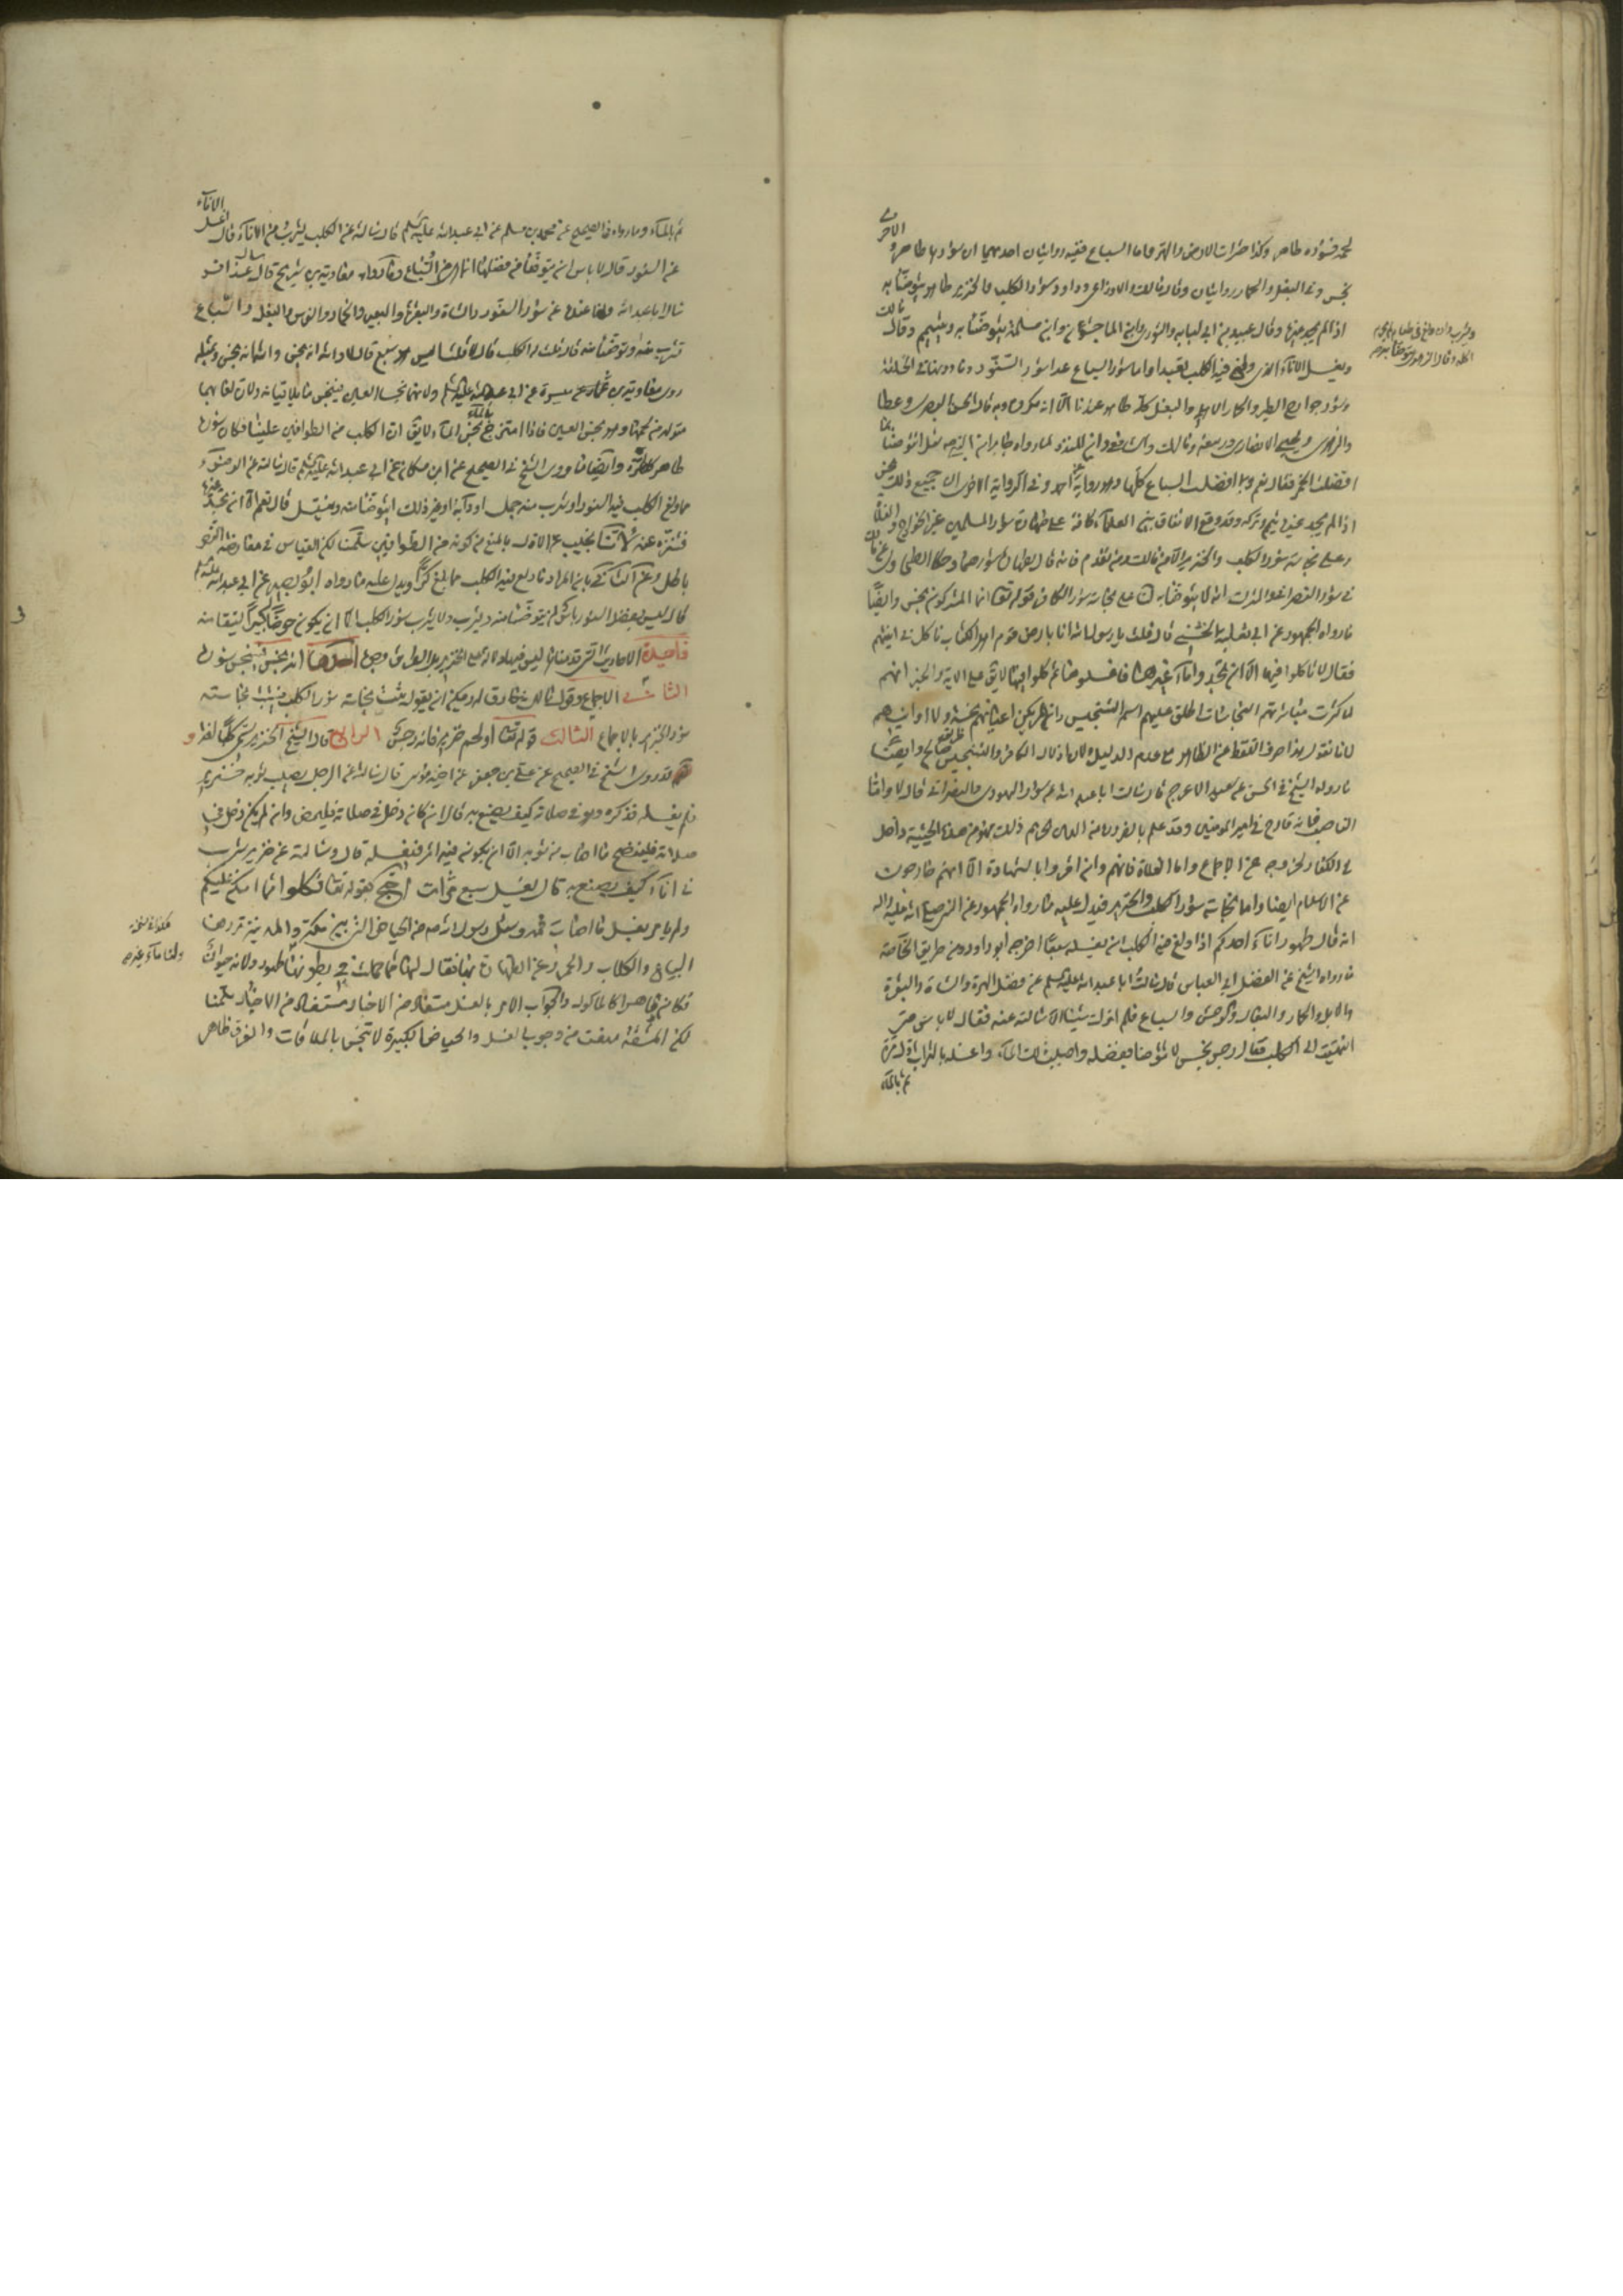 لحمه فسؤره طاهر وكذا حشرات الارض والهر فاما السباع ففيه روايتان احديهما ان سؤرها طاهر والاخرى
نجس وفي البغل والحمار روايتان وقال مالك والاوزاعي وداود سؤر الكلب والخنزير طاهر يتوضأ به
ويشرب وان ولغ في طعام لم يحرم اكله وقال الزهري يتوضأ به
اذا لم يجد غيره وقال عبيدة بن ابي لبابه والثوري وابن الماجشون وابن مسلمة يتوضأ به ويتيمم وقال مالك
ويغسل الاناء الذي ولغ فيه الكلب تعبدا واما سؤر السباع عدا سؤر السنور وما دونها في الخلقة
وسؤر جوارح الطير والحمار الاهلي والبغل كله طاهر عندنا الا انه مكروه وبه قال الحسن البصري وعطا
والزهري ويحيى الانصاري وربيعة ومالك والشافعي وابن المنذر لما رواه جابر ان النبي ص سئل انتوضأ بما
افضلت الحمر فقال نعم وبما افضلت السباع كلها وهو رواية عن احمد وفي الرواية الاخرى ان جميع ذلك نجس
اذا لم يجد غيره تيمم وتركه وقد وقع الاتفاق بين العلماء كافة على طهارة سؤر المسلمين غير الخوارج والغلاة
وعلى نجاسة سؤر الكلب والخنزير الا من مالك ومن تقدم فانه قال بطهارة سؤرهما وحكى الطحاوي عن مالك
في سؤر النصراني والمشرك انه لا يتوضأ به لنا على نجاسة سؤر الكافر قوله تعالى انما المشركون نجس وايضا
ما رواه الجمهور عن ابي ثعلبة الخشني قال قلت يا رسول الله انا بارض قوم اهل الكتاب ناكل في آنيتهم
فقال لا تاكلوا فيها الا ان لم تجدوا غيرها فاغسلوها ثم كلوا فيها لا يق مع الاية والخبر انهم
لما كثرت مباشرتهم النجاسات اطلق عليهم اسم التنجيس وان لم يكن اعيانهم نجسة ولا اوانيهم
لانا نقول هذا صرف اللفظ عن الظاهر مع عدم الدليل ولان اذلال الكافر والتنجيس طريق صالح وايضا
ما رواه الشيخ في الحسن عن سعيد الاعرج قال سالت ابا عبد الله عن سؤر اليهودي والنصراني قال لا واما
الناصب فانه قادح في امير المؤمنين وقد علم بالضرورة من الدين تحريم ذلك فهو من هذه الحيثية داخل
في الكفار لخروجه عن الاجماع واما الغلاة فانهم وان اقروا بالشهادة الا انهم خارجون
عن الاسلام ايضا واما نجاسة سؤر الكلب والخنزير فيدل عليه ما رواه الجمهور عن النبي صلى الله عليه واله
انه قال طهور اناء احدكم اذا ولغ فيه الكلب ان يغسله سبعا اخرجه ابو داود ومن طريق الخاصة
ما رواه الشيخ عن الفضل ابي العباس قال سالت ابا عبد الله عليه السلم عن فضل الهرة والشاة والبقرة
والابل والحمار والبغال والوحش والسباع فلم اترك شيئا الا سالته عنه فقال لا باس حتى
انتهيت الى الكلب فقال رجس نجس لا تتوضأ بفضله واصبب ذلك الماء واغسله بالتراب اول مرة
ثم بالماء
ثم بالماء وما رواه في الصحيح عن محمد بن مسلم عن ابي عبد الله عليه السلم قال سالته عن الكلب يشرب من الاناء قال اغسل الاناء
عن السنور قال لا باس ان يتوضأ من فضلها انما هي من السباع وما رواه معاوية بن شريح قال سال عذافر
ابا عبد الله وانا عنده عن سؤر السنور والشاة والبقرة والبعير والحمار والفرس والبغل والسباع
يشرب منه او يتوضأ منه قال نعم قلت له الكلب قال لا قلت اليس هو سبع قال لا والله انه نجس والله انه نجس وبمثله
روى معاوية بن عمار عن ميسرة عن ابي عبد الله عليه السلم ولانهما نجسا العين فينجس ما يلاقيانه ولان لعابهما
متولد من لحمهما وهو نجس العين فاذا امتزج بالماء نجس الماء لا يق ان الكلب من الطوافين علينا فكان سؤره
طاهرا كالهرة وايضا ما روى الشيخ في الصحيح عن ابن مسكان عن ابي عبد الله عليه السلم قال سالته عن الوضوء
مما ولغ الكلب فيه والسنور او شرب منه جمل او دابة او غير ذلك ايتوضأ منه ويغتسل قال نعم الا ان تجد غيره
فتنزه عنه لانا نجيب عن الاول بالمنع من كونه من الطوافين سلمنا لكن القياس في معارضة النص
باطل وعن الثاني بان المراد ما ولغ فيه الكلب مما بلغ كرا ويدل عليه ما رواه ابو بصير عن ابي عبد الله عليه السلم
قال ليس بفضل السنور باس ان يتوضأ منه ويشرب ولا يشرب سؤر الكلب الا ان يكون حوضا كبيرا يستقى منه
فايدة الاحاديث التي قدمناها ليس فيها دلالة على الخنزير بل الدلالة من وجوه احدها انه نجس فينجس سؤره
الثاني الاجماع وقول مالك خارق له ويمكن ان يقول تثبت نجاسة سؤر الكلب فيثبت نجاسته
سؤر الخنزير بالاجماع الثالث قوله تعالى او لحم خنزير فانه رجس الرابع قال الشيخ الخنزير يسمى كلبا لغة و
قد روى الشيخ في الصحيح عن علي بن جعفر عن اخيه موسى قال سالته عن الرجل يصيب ثوبه خنزير
فلم يغسله فذكره وهو في صلاته كيف يصنع به قال ان كان دخل في صلاته فليمض وان لم يكن دخل في
صلاته فلينضح ما اصاب من ثوبه الا ان يكون فيه اثر فيغسله قال وسالته عن خنزير شرب
في اناء كيف يصنع به قال يغسل سبع مرات احتج بقوله تعالى فكلوا مما امسكن عليكم
ولم يامر بغسل ما اصاب فمه وسئل رسول الله ص عن الحياض التي بين مكة والمدينة تردها
السباع والكلاب والحمر وعن الطهارة بها فقال لها ما حملت في بطونها طهور ولانه حيوان
ولنا ما غبر
فكان طاهرا كالماكول والجواب الامر بالغسل مستفاد من الاخبار سلمنا
لكن المشقة منعت من وجوب الغسل والحياض الكبيرة لا تنجس بالملاقات والفرق ظاهر